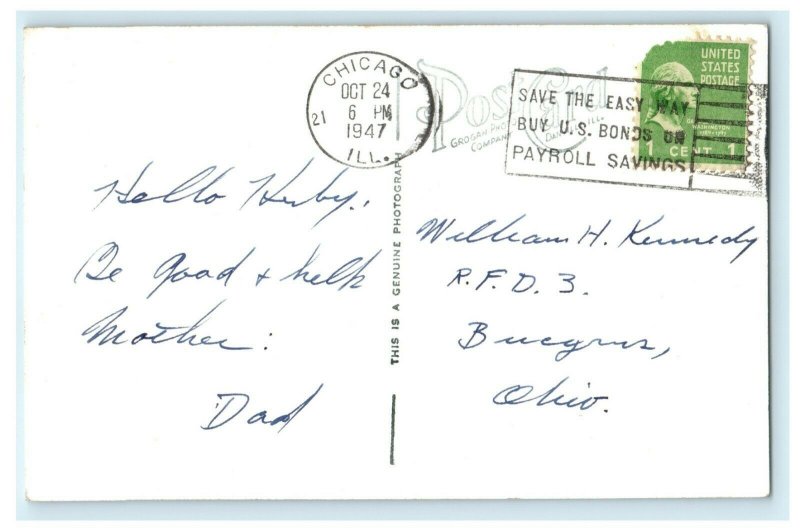 CHICAGO
OCT 24
6 PM
1947
21
ILL.
Post Card
GROGAN PHOTO
COMPANY
DANVILLE, ILL.
SAVE THE EASY WAY
BUY U.S. BONDS ON
PAYROLL SAVINGS
UNITED
STATES
POSTAGE
WASHINGTON
1 CENT 1
THIS IS A GENUINE PHOTOGRAPH
Hello Huby,
Be good & help
Mother:
Dad
William H. Kennedy
R.F.D. 3.
Bucyrus,
Ohio.